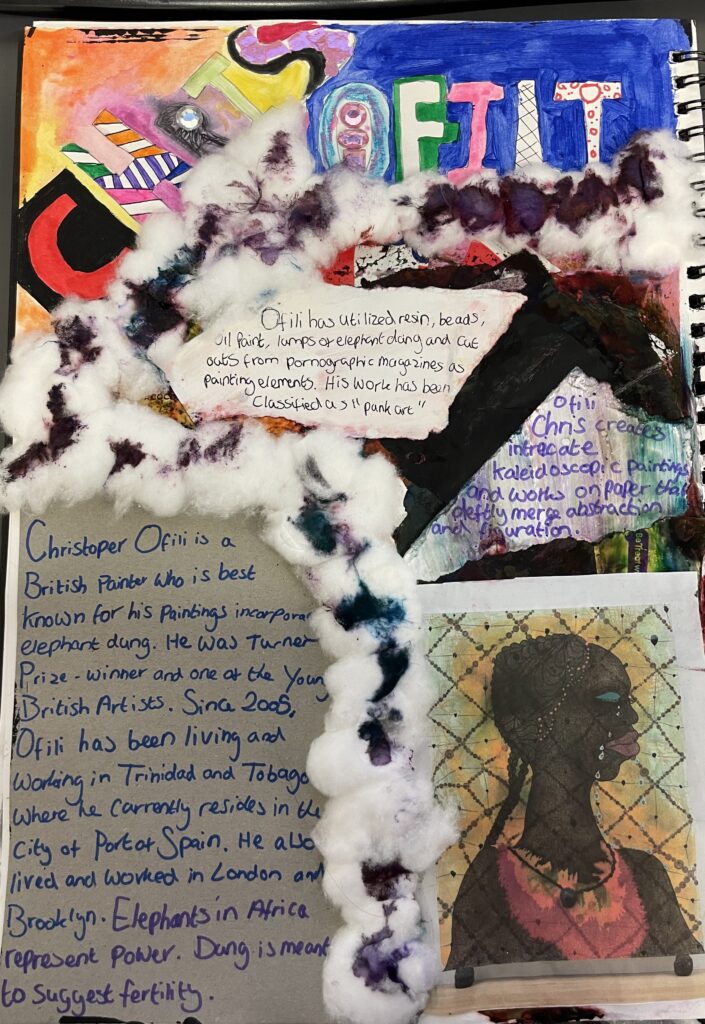 CHRIS
OFILI
Ofili has utilized resin, beads,
oil paint, lumps of elephant dung and cut
outs from pornographic magazines as
painting elements. His work has been
classified as "punk art"
Ofili
Chris creates
intrecate
kaleidoscopic paintings
and works on paper that
deftly merge abstraction
and figuration.
Christoper Ofili is a
British Painter who is best
known for his paintings incorpora
elephant dung. He was Turner
Prize - winner and one of the Young
British Artists. Since 2005,
Ofili has been living and
working in Trinidad and Tobago
where he currently resides in the
City of Port of Spain. He also
lived and worked in London and
Brooklyn. Elephants in Africa
represent power. Dung is meant
to suggest fertility.